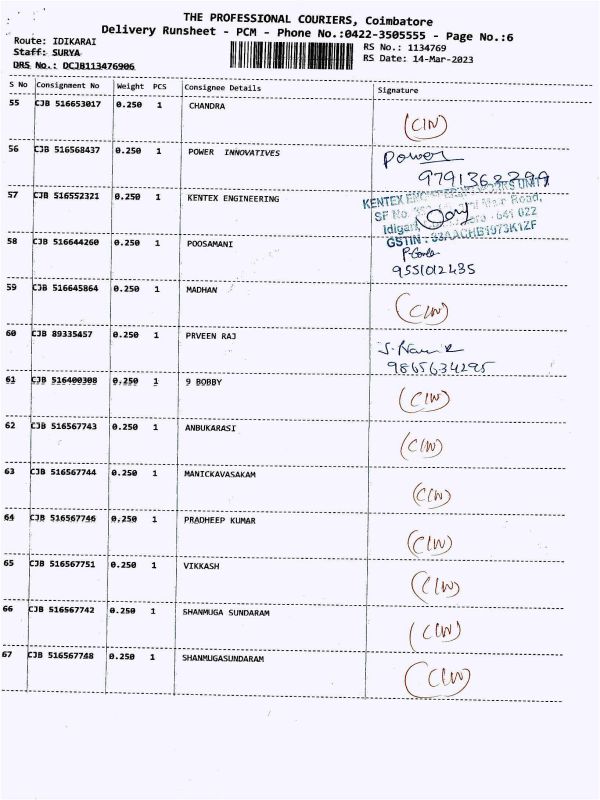 THE PROFESSIONAL COURIERS, Coimbatore
Delivery Runsheet - PCM - Phone No.:0422-3505555 - Page No.:6
Route: IDIKARAI
RS No.: 1134769
Staff: SURYA
RS Date: 14-Mar-2023
DRS No.: DCJB113476906
S No Consignment No Weight PCS Consignee Details Signature
55 CJB 516653017 0.250 1 CHANDRA
(CIN)
56 CJB 516568437 0.250 1 POWER INNOVATIVES
Power
57 CJB 516552321 0.250 1 KENTEX ENGINEERING
KENTEX
Road,
SF No.
641 022
GSTIN : 33AACHB1973K1ZF
58 CJB 516644260 0.250 1 POOSAMANI
9551012435
59 CJB 516645864 0.250 1 MADHAN
(CIN)
60 CJB 89335457 0.250 1 PRVEEN RAJ
9865634295
61 CJB 516400308 0.250 1 9 BOBBY
(CIW)
62 CJB 516567743 0.250 1 ANBUKARASI
(CIW)
63 CJB 516567744 0.250 1 MANICKAVASAKAM
(CIW)
64 CJB 516567746 0.250 1 PRADHEEP KUMAR
(CIW)
65 CJB 516567751 0.250 1 VIKKASH
(CIW)
66 CJB 516567742 0.250 1 SHANMUGA SUNDARAM
(CIW)
67 CJB 516567748 0.250 1 SHANMUGASUNDARAM
(CIW)